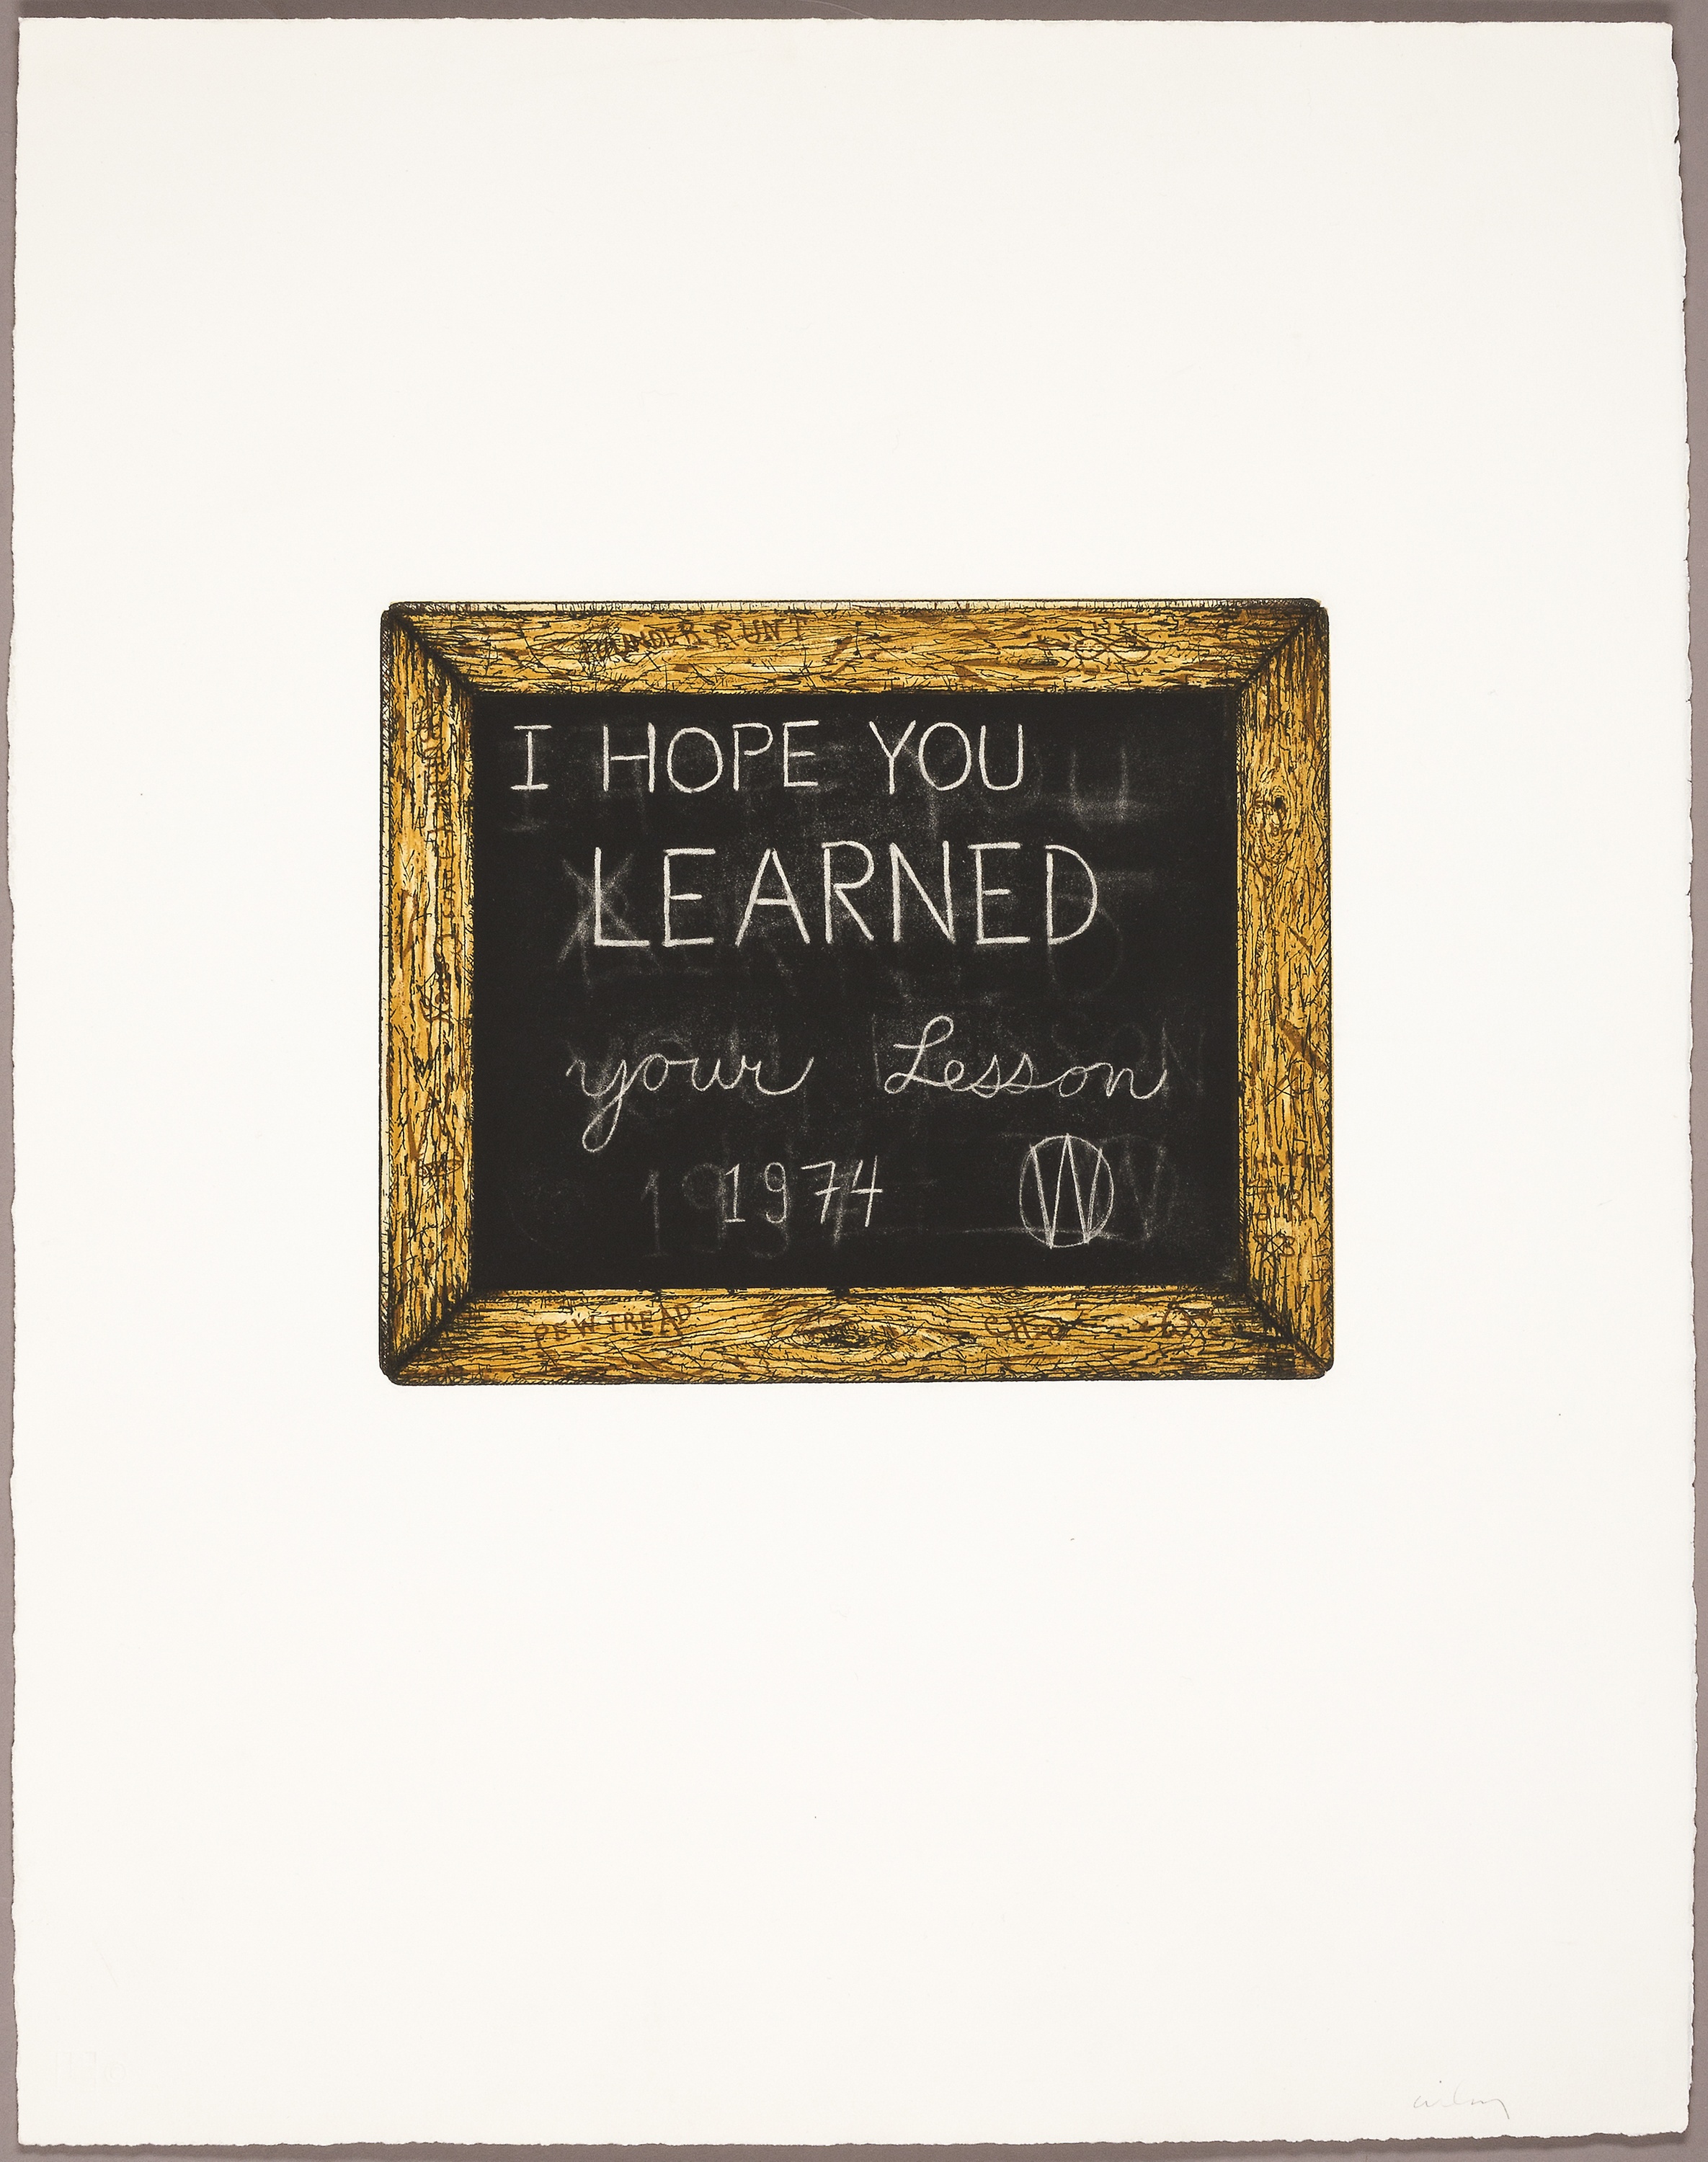 I HOPE YOU
LEARNED
your Lesson
1974 W
PEWTREAD